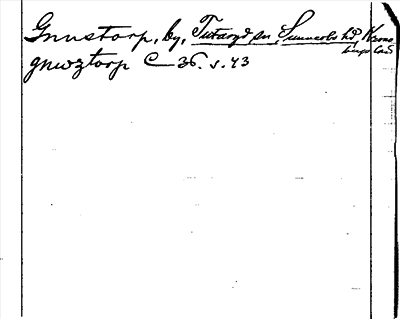 Gnustorp, by, Tutaryd sn, Sunnerbo hd, Krono
bergs län
gnuztorp C 36. s. 43